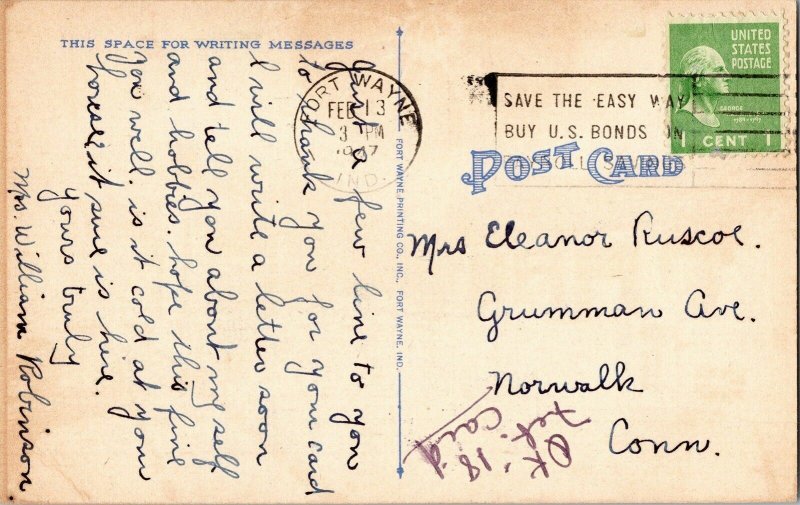 THIS SPACE FOR WRITING MESSAGES
Just a few line to you
to thank you for your card
I will write a letter soon
and tell you about my self
and hobbies. hope this fine
you well. is it cold at your
house. it sure is here.
yours truly
Mrs. William Robinson
FORT WAYNE
FEB 13
3 PM
1947
IND.
FORT WAYNE PRINTING CO., INC., FORT WAYNE, IND.
SAVE THE EASY WAY
BUY U.S. BONDS ON
UNITED
STATES
POSTAGE
GEORGE
1 CENT 1
POST CARD
Mrs Eleanor Ruscoe.
Grumman Ave.
Norwalk
Conn.
OK'18'd
card